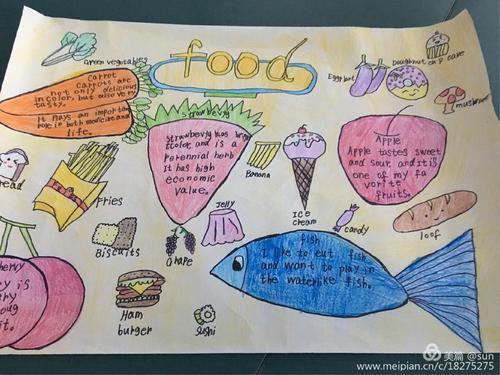 food
Green vegetables
Carrot
Carrots are
not only delicious
in color, but also very
tasty.
It plays an important
role in both medicine and
life.
Strawberry
Strawberry has bright
color, and is a
perennial herb
It has high
economic
value.
Eggplant
Doughnut
cup cake
mushroom
Apple
Apple tastes sweet
and sour, and it is
one of my fa
vorite
fruits.
Bread
Fries
Banana
Ice
cream
candy
loof
Jelly
Biscuits
Grape
fish
I like to eat fish
and want to play in
the water like fish.
Ham
burger
Sushi
美篇 @sun
www.meipian.cn/c/18275275